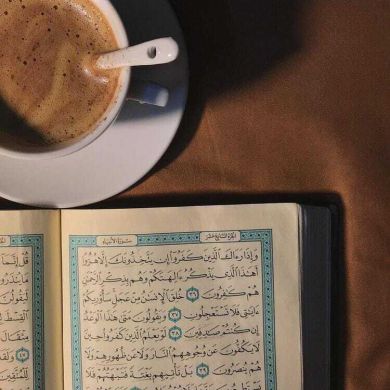 الجزء السابع عشر سورة الأنبياء
وَإِذَا رَءَاكَ ٱلَّذِينَ كَفَرُوٓا۟ إِن يَتَّخِذُونَكَ إِلَّا هُزُوًا
أَهَٰذَا ٱلَّذِى يَذْكُرُ ءَالِهَتَكُمْ وَهُم بِذِكْرِ ٱلرَّحْمَٰنِ
هُمْ كَٰفِرُونَ ٣٦ خُلِقَ ٱلْإِنسَٰنُ مِنْ عَجَلٍ سَأُو۟رِيكُمْ
ءَايَٰتِى فَلَا تَسْتَعْجِلُونِ ٣٧ وَيَقُولُونَ مَتَىٰ هَٰذَا ٱلْوَعْدُ
إِن كُنتُمْ صَٰدِقِينَ ٣٨ لَوْ يَعْلَمُ ٱلَّذِينَ كَفَرُوا۟ حِينَ
لَا يَكُفُّونَ عَن وُجُوهِهِمُ ٱلنَّارَ وَلَا عَن ظُهُورِهِمْ وَلَا
هُمْ يُنصَرُونَ ٣٩ بَلْ تَأْتِيهِم بَغْتَةً فَتَبْهَتُهُمْ فَلَا
قُلْ إِنَّمَا
لَيَقُولُنَّ
ٱلْقِسْطَ
مِثْقَالَ
وَلَقَدْ